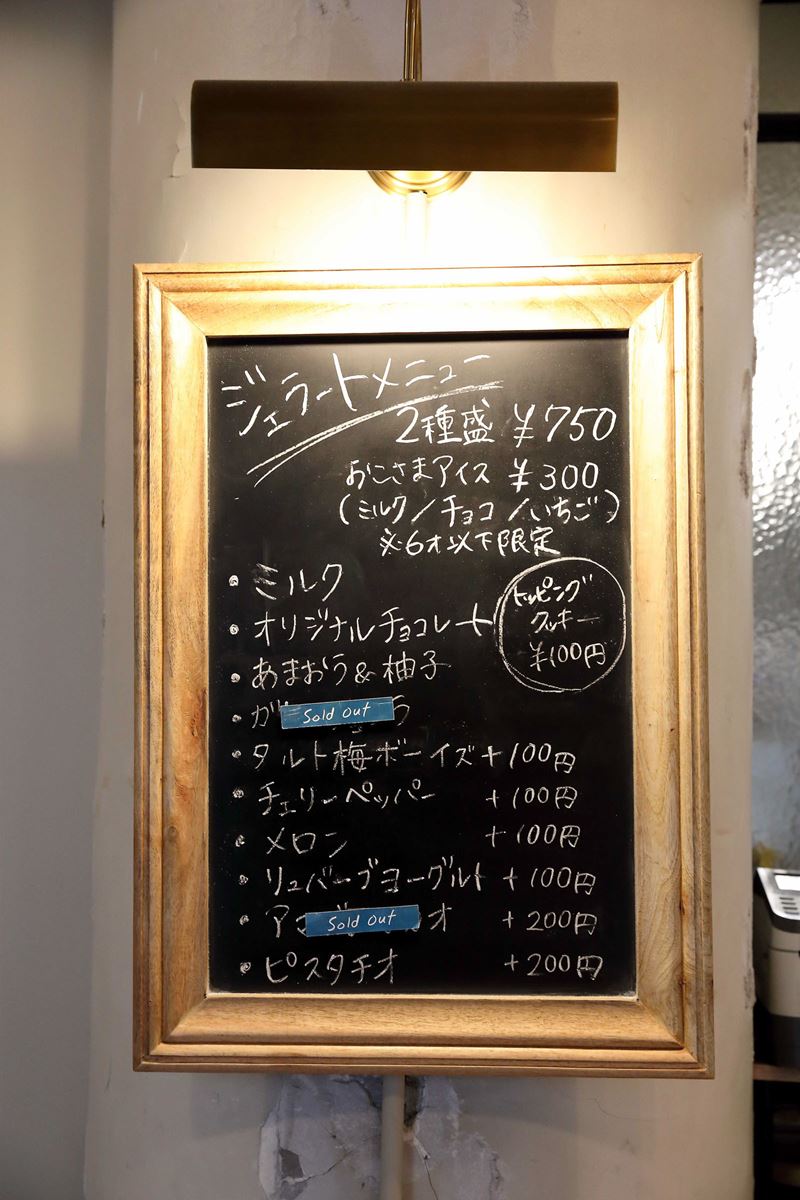 ジェラートメニュー
2種盛 ¥750
おこさまアイス ¥300
(ミルク/チョコ/いちご)
※6才以下限定
・ミルク
・オリジナルチョコレート
トッピング
クッキー
¥100円
・あまおう&柚子
・ガ Sold Out ラ
・タルト梅ボーイズ+100円
・チェリーペッパー +100円
・メロン +100円
・リュバーブヨーグルト +100円
・ア Sold Out オ +200円
・ピスタチオ +200円